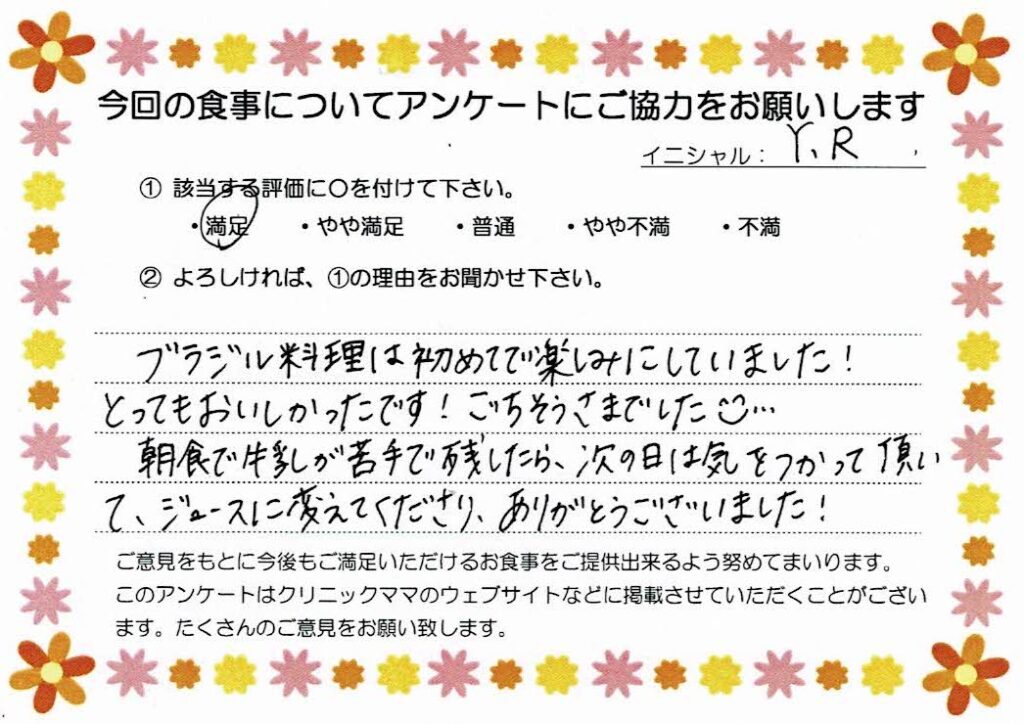 今回の食事についてアンケートにご協力をお願いします
イニシャル： Y、R
① 該当する評価に〇を付けて下さい。
・満足 ・やや満足 ・普通 ・やや不満 ・不満
② よろしければ、①の理由をお聞かせ下さい。
ブラジル料理は初めてで楽しみにしていました！
とってもおいしかったです！ごちそうさまでした☺…
朝食で牛乳が苦手で残したら、次の日は気をつかって頂い
て、ジュースに変えてくださり、ありがとうございました！
ご意見をもとに今後もご満足いただけるお食事をご提供出来るよう努めてまいります。
このアンケートはクリニックママのウェブサイトなどに掲載させていただくことがござい
ます。たくさんのご意見をお願い致します。